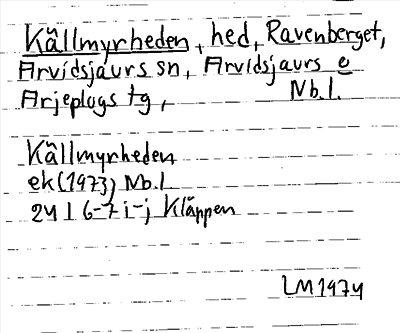 Källmyrheden, hed, Ravenberget,
Arvidsjaurs sn, Arvidsjaurs o
Arjeplogs tg, Nb.l.
Källmyrheden
ek (1973) Nb.l
24 I 6-7 i-j Kläppen
LM 1974